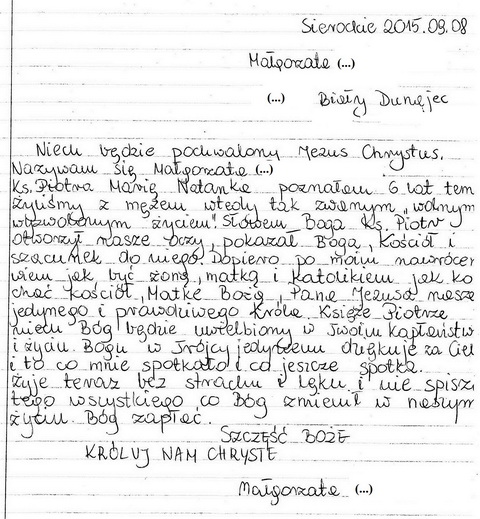 Sierockie 2015.09.08
Małgorzata (...)
(...) Biały Dunajec
Niech będzie pochwalony Jezus Chrystus.
Nazywam się Małgorzata (...)
Ks. Piotra Marię Natanka poznałam 6 lat tem
żyliśmy z mężem wtedy tak zwanym „wolnym
wyzwolonym życiem". Słowem Boga Ks. Piotr
otworzył nasze oczy, pokazał Boga, Kościół i
szacunek do niego. Dopiero po moim nawrócen
wiem jak być żoną, matką i katolikiem jak ko
chać kościół, Matkę Bożą, Pana Jezusa nasze
jedynego i prawdziwego Króla. Księże Piotrze
niech Bóg będzie uwielbiony w Twoim kapłaństw
i życiu. Bogu w Trójcy jedynemu dziękuję za Cieb
i to co mnie spotkało i co jeszcze spotka.
Żyję teraz bez strachu i lęku i nie spiszę
tego wszystkiego co Bóg zmienił w naszym
życiu. Bóg zapłać.
SZCZĘŚĆ BOŻE
KRÓLUJ NAM CHRYSTE
Małgorzata (...)